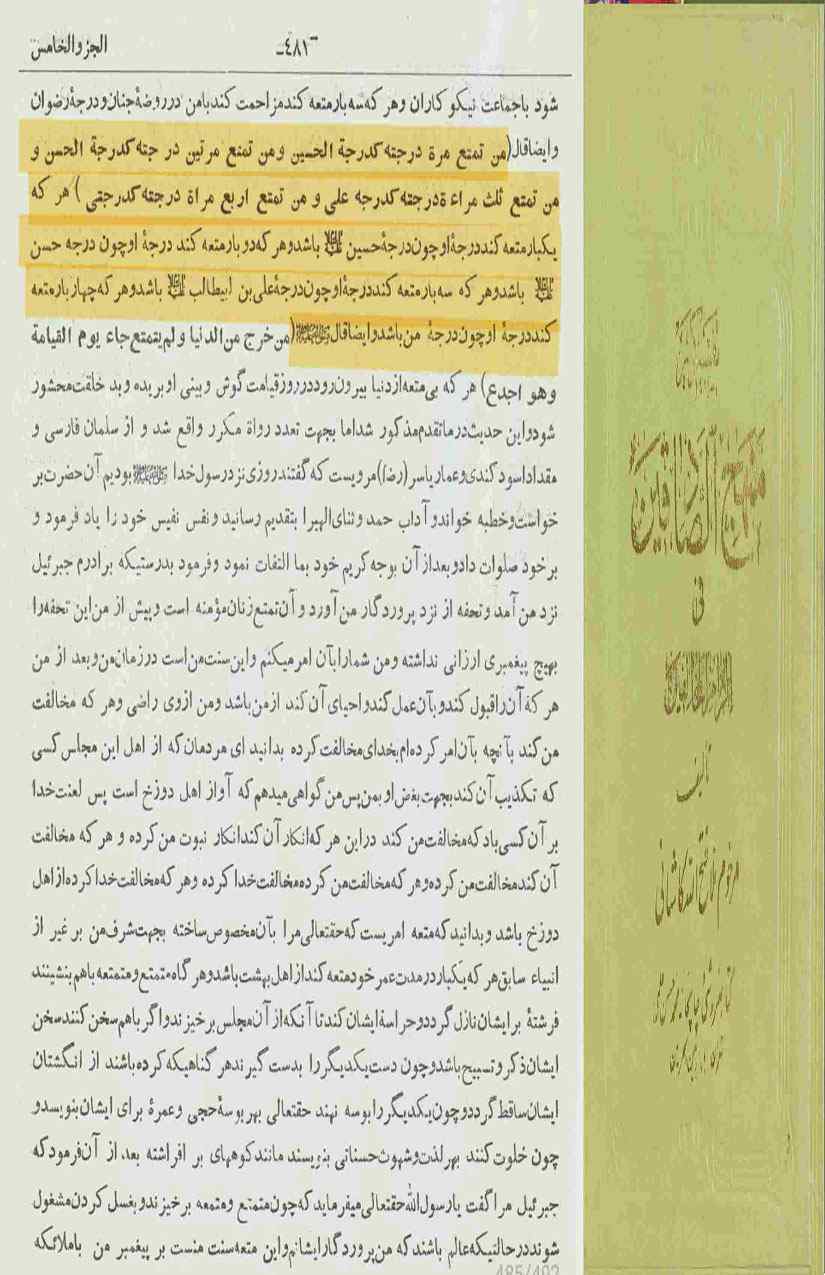 الجزوالخامس
-٤٨١-
شود باجماعت نیکو کاران وهر که سه بارمتعه کندمزاحمت کندبامن درروضهٔ جنان ودرجهٔ رضوان
وایضاقال(من تمتع مرة درجته کدرجة الحسین ومن تمتع مرتین در جته کدرجة الحسن و
من تمتع ثلث مراءة درجته کدرجه علی و من تمتع اربع مراة درجته کدرجتی ) هر که
یکبارمتعه کنددرجهٔ اوچون درجهٔ حسین باشدوهر که دو بارمتعه کند درجهٔ اوچون درجه حسن
باشدوهر که سه بارمتعه کنددرجهٔ اوچون درجهٔ علی بن ابیطالب باشدوهر که چهار بارمتعه
کنددرجهٔ اوچون درجهٔ من باشدوایضاقال ﷺ (من خرج من الدنیا ولم یتمتع جاء یوم القیامة
وهو اجدع) هر که بی متعه ازدنیا بیرون روددرروزقیامت گوش وبینی اوبریده وبد خلقت محشور
شودواین حدیث درماتقدم مذکور شداما بجهت تعدد رواة مکرر واقع شد و از سلمان فارسی و
مقداداسود کندی وعمار یاسر(رضا)مرویست که گفتندروزی نزدرسول خدا ﷺ بودیم آن حضرت بر
خواست وخطبه خواندوآداب حمد وثنای الهیرا بتقدیم رسانید ونفس نفیس خود را یاد فرمود و
برخود صلوات دادوبعدازآن بوجه کریم خود بما التفات نمود وفرمود بدرستیکه برادرم جبرئیل
نزد من آمد وتحفه از نزد پروردگار من آورد و آن تمتع زنان مؤمنه است وپیش از من این تحفه را
بهیچ پیغمبری ارزانی نداشته ومن شمارابآن امرمیکنم واین سنت من است درزمان من وبعد از من
هر که آن راقبول کندوبآن عمل کندواحیای آن کند ازمن باشد ومن ازوی راضی وهر که مخالفت
من کند بآنچه بآن امر کرده ام بخدای مخالفت کرده بدانید ای مردمان که از اهل این مجلس کسی
که تکذیب آن کندبجهت بغض او بمن پس من گواهی میدهم که آواز اهل دوزخ است پس لعنت خدا
بر آن کسی باد که مخالفت من کند دراین هر که انکار آن کندانکار نبوت من کرده و هر که مخالفت
آن کندمخالفت من کرده وهر که مخالفت من کرده مخالفت خدا کرده وهر که مخالفت خدا کرده ازاهل
دوزخ باشد وبدانید که متعه امریست که حقتعالی مرا بآن مخصوص ساخته بجهت شرف من بر غیر از
انبیاء سابق هر که یکبار درمدت عمر خودمتعه کندازاهل بهشت باشدوهر گاه متمتع ومتمتعه باهم بنشینند
فرشتهٔ برایشان نازل گرددوحراسهٔ ایشان کندتا آنکه از آن مجلس برخیزندواگر باهم سخن کنندسخن
ایشان ذکر وتسبیح باشدوچون دست یکدیگر را بدست گیرندهر گناهیکه کرده باشند از انگشتان
ایشان ساقط گرددوچون یکدیگر رابوسه نهند حقتعالی بهر بوسهٔ حجی وعمرهٔ برای ایشان بنویسدو
چون خلوت کنند بهر لذت وشهوت حسناتی بنویسند مانند کوههای بر افراشته بعد از آن فرمود که
جبرئیل مرا گفت یارسول الله حقتعالی میفرماید که چون متمتع ومتمتعه برخیزندوبغسل کردن مشغول
شونددرحالتیکه عالم باشند که من پروردگارایشانم واین متعه سنت منست بر پیغمبر من باملائکه
485/493
منهج الصادقین
فی
تألیف
مرحوم ملا فتح الله کاشانی